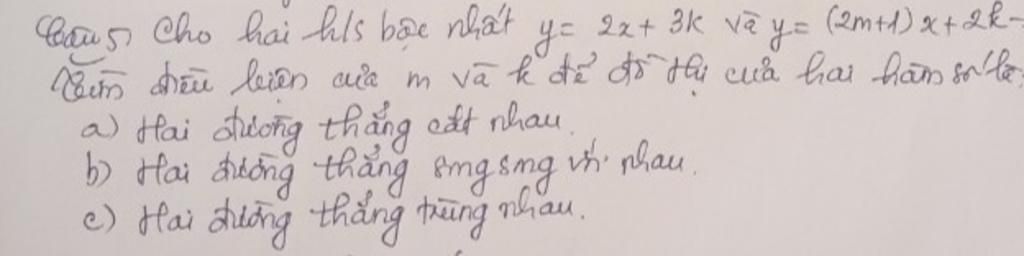 Câu 5) Cho hai h/s bậc nhất y = 2x + 3k và y = (2m+1)x + 2k -
Tìm điều kiện của m và k để đồ thị của hai hàm số là:
a) Hai đường thẳng cắt nhau.
b) Hai đường thẳng song song với nhau.
c) Hai đường thẳng trùng nhau.